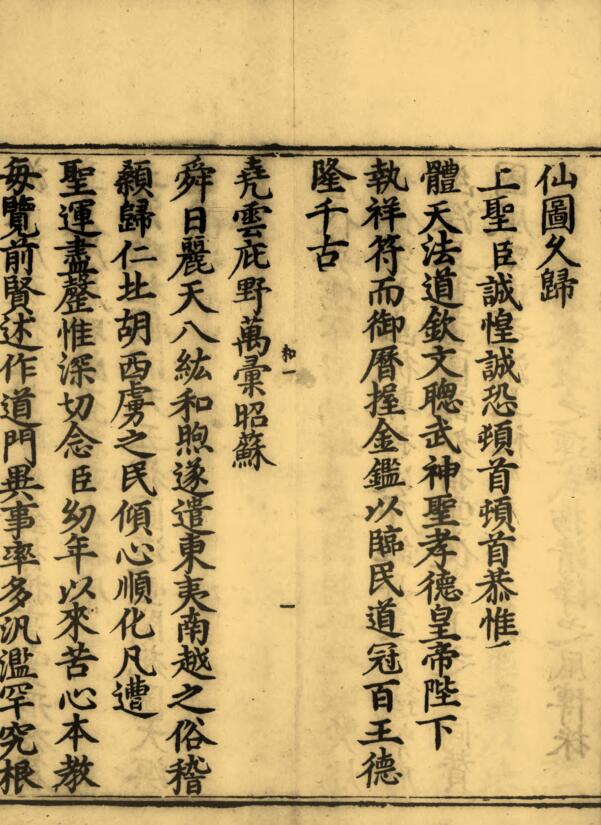 仙圖久歸
上聖臣誠惶誠恐頓首頓首恭惟
體天法道欽文聰武神聖孝德皇帝陛下
執祥符而御曆握金鑑以臨民道冠百王德
隆千古
堯雲庇野萬彙昭蘇
和一
一
舜日麗天八紘和煦遂遣東夷南越之俗稽
顙歸仁北胡西虜之民傾心順化凡遭
聖運盡罄惟深切念臣幼年以來苦心本教
每覽前賢述作道門異事率多汎濫罕究根